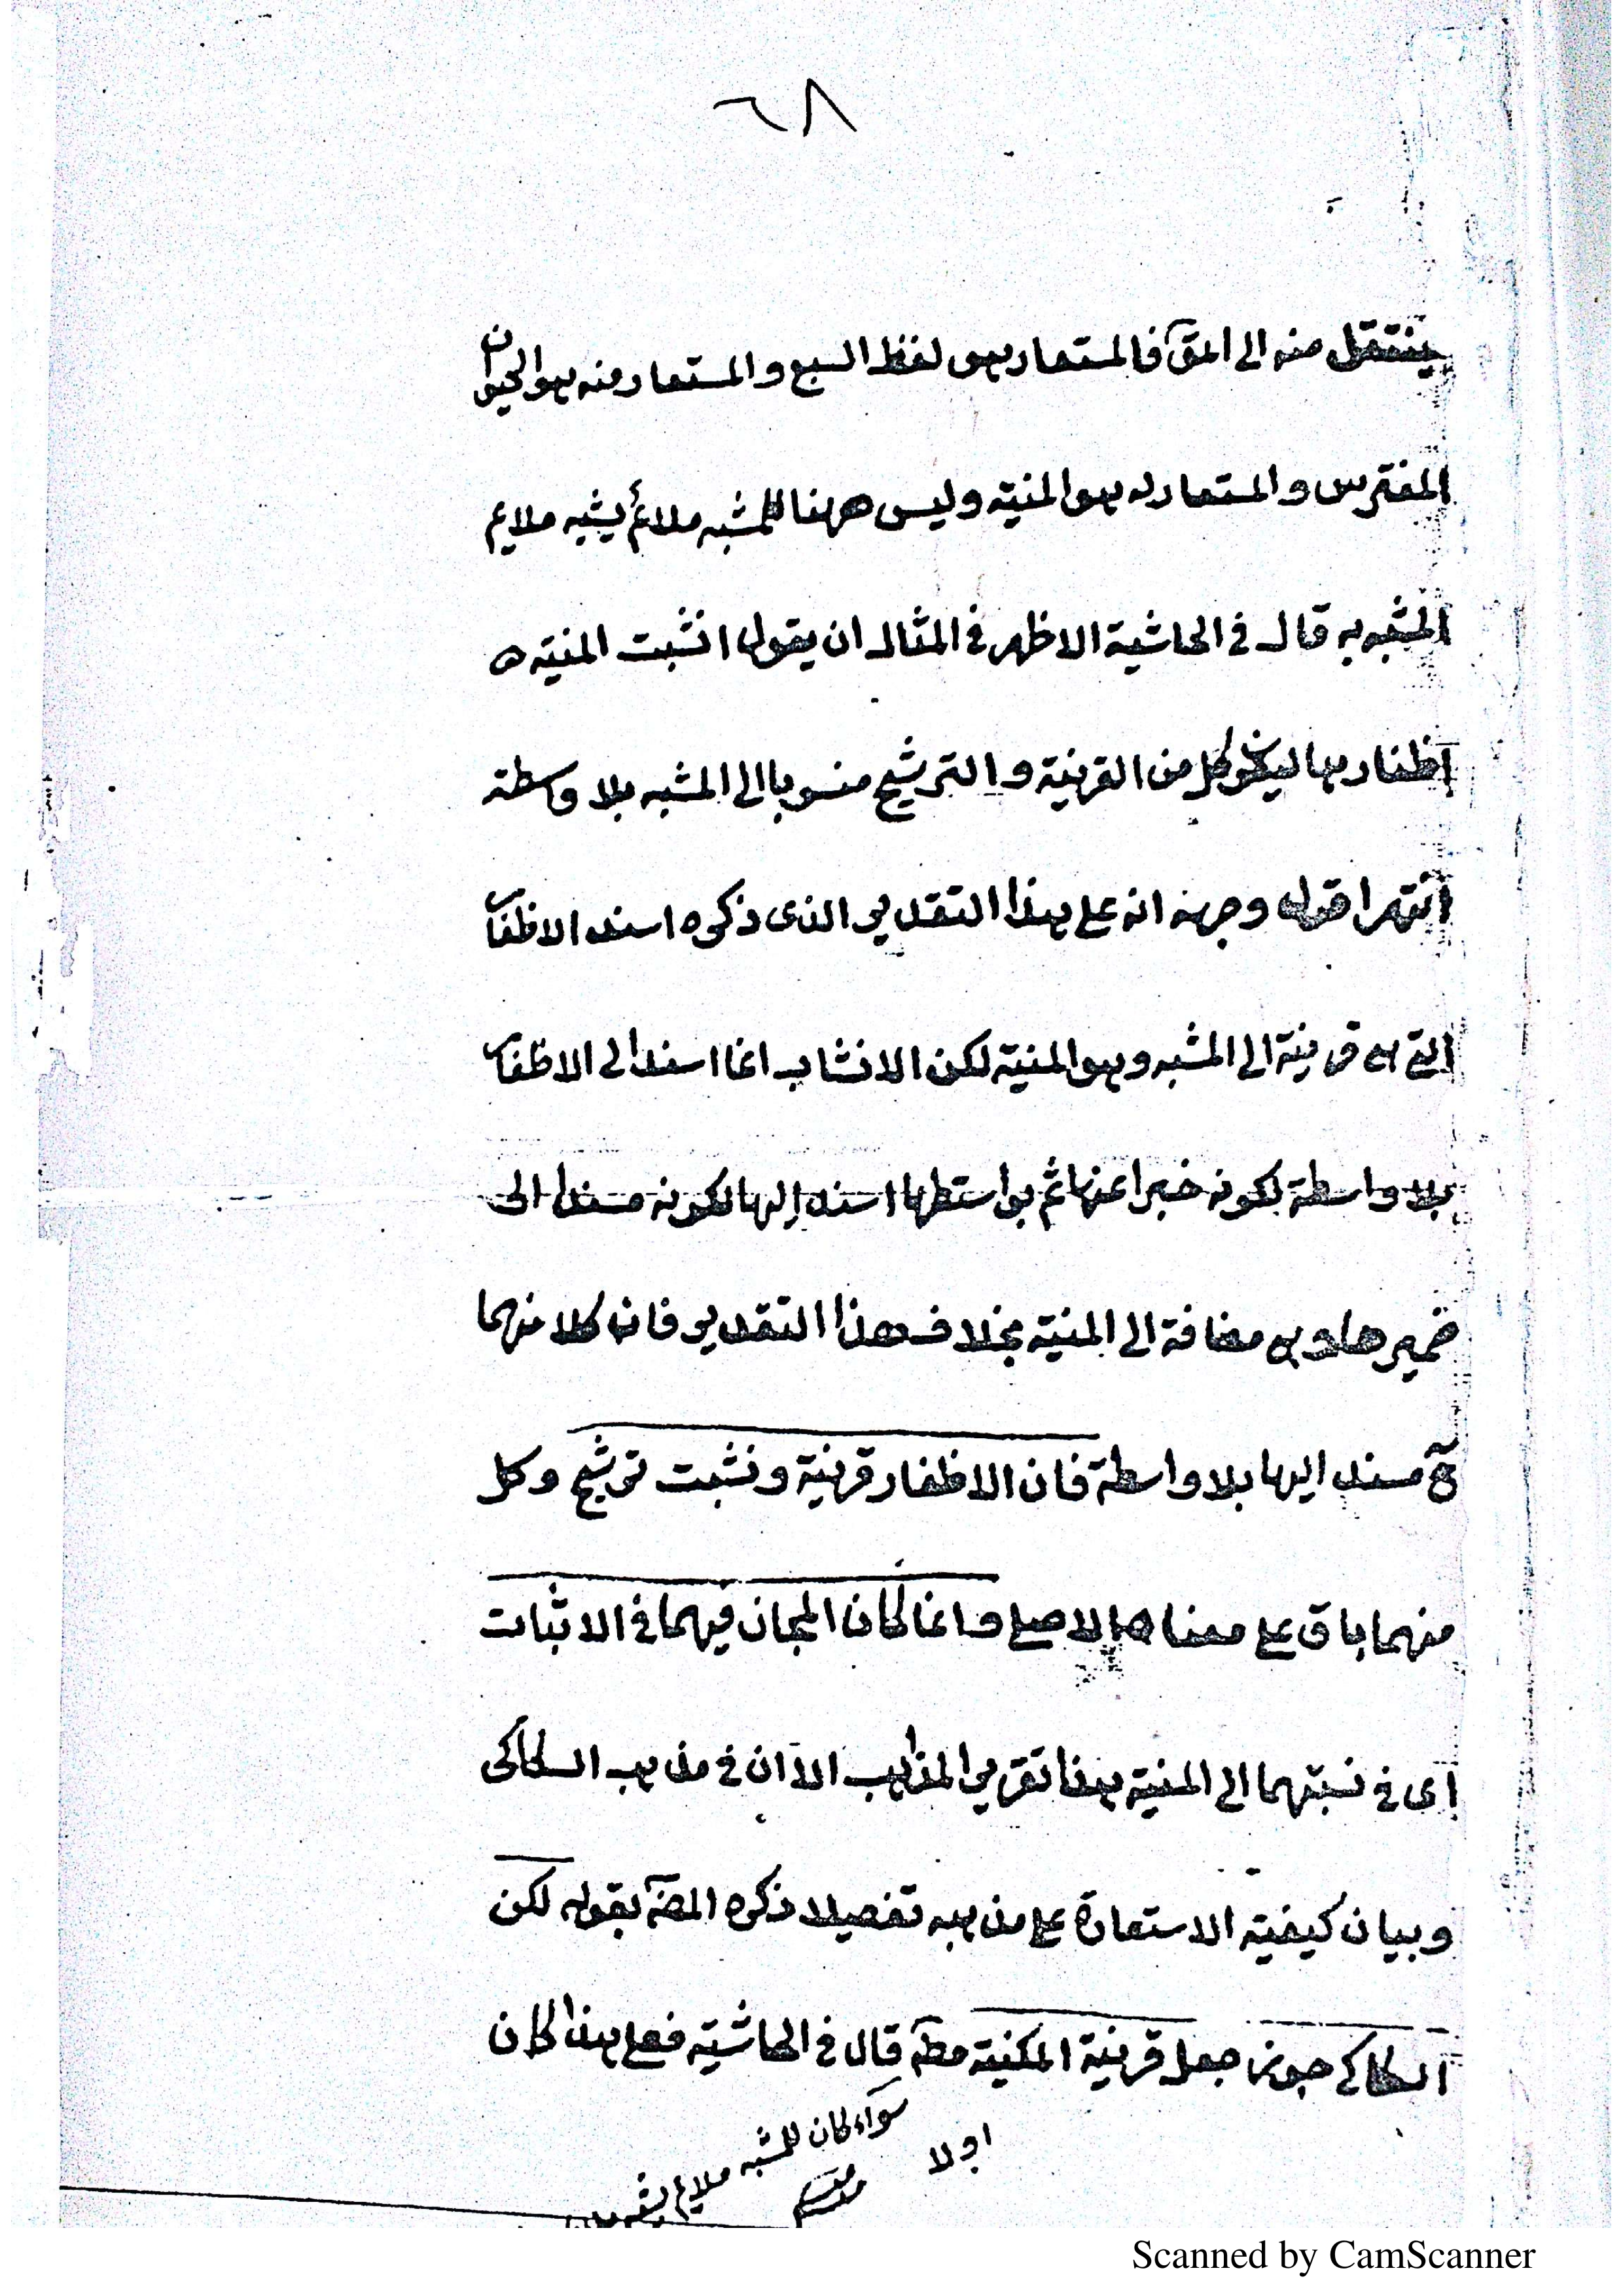 ٦٨
ينتقل منه الى المق فالمستعار هو لفظ السبع والمستعار منه هو الحيوان
المفترس والمستعار له هو المنية وليس ههنا للمشبه ملائم يشبه ملايم
المشبه به قال في الحاشية الاظهر في المثال ان يقول انشبت المنية
اظفارها ليكون كل من القرينة والترشيح منسوبا الى المشبه بلا واسطة
انتهى اقول وجهه انه على هذا التقدير الذى ذكره اسند الاظفار
التي هي قرينة الى المشبه وهو المنية لكن الانشاب انما اسند الى الاظفار
بلا واسطة لكونه خبرا عنها ثم بواستطها اسند إليها لكونه مسندا الى
ضمير هى مضافة الى المنية بخلاف هذا التقدير فان كلا منهما
ح مسند اليها بلا واسطة فان الاظفار قرينة ونشبت ترشيح وكل
منهما باق على معناه الاصلي وانما كان المجاز فيهما في الاثبات
اى في نسبتهما الى المنية هذا تقرير المذاهب الا ان في مذهب السكاكى
وبيان كيفية الاستعارة على مذهبه تفصيلا ذكره المصـ بقوله لكن
السكاكي جوز جعل قرينة المكنية مطـ قال في الحاشية فعلى هذا كان
سواء كان للمشبه ملايم
اولا